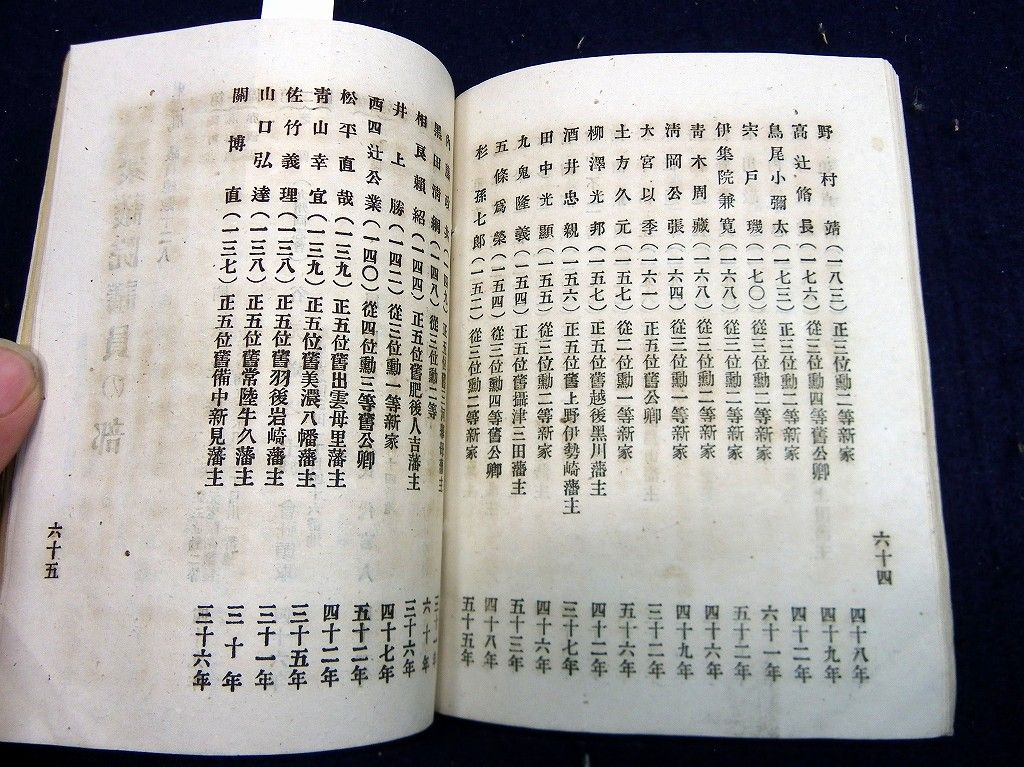 野村靖（一八三）正三位勳二等新家 四十八年
高辻脩長（一七六）從三位勳四等舊公卿 四十九年
鳥尾小彌太（一七三）正三位勳二等新家 四十二年
宍戶璣（一七〇）從三位勳二等新家 六十一年
伊集院兼寬（一六八）從三位勳二等新家 五十二年
靑木周藏（一六八）從三位勳一等新家 四十六年
淸岡公張（一六四）從三位勳一等新家 四十九年
大宮以季（一六一）正五位舊公卿 三十二年
土方久元（一五七）從二位勳一等新家 五十六年
柳澤光邦（一五七）正五位舊越後黑川藩主 四十二年
酒井忠親（一五六）正五位舊上野伊勢崎藩主 三十七年
田中光顯（一五五）從三位勳二等新家 四十六年
九鬼隆義（一五四）正五位舊攝津三田藩主 五十三年
五條爲榮（一五四）從三位勳四等舊公卿 四十八年
杉孫七郞（一五二）從三位勳二等新家 五十五年
六十四
黑田淸綱（一四八）從三位勳二等 六十年
相良賴紹（一四四）正五位舊肥後人吉藩主 三十六年
井上勝（一四二）從三位勳一等新家 四十七年
西四辻公業（一四〇）從四位勳三等舊公卿 五十二年
松平直哉（一三九）正五位舊出雲母里藩主 四十二年
靑山幸宜（一三九）正五位舊美濃八幡藩主 三十五年
佐竹義理（一三八）正五位舊羽後岩崎藩主 三十一年
山口弘達（一三八）正五位舊常陸牛久藩主 三十年
關博直（一三七）正五位舊備中新見藩主 三十六年
六十五